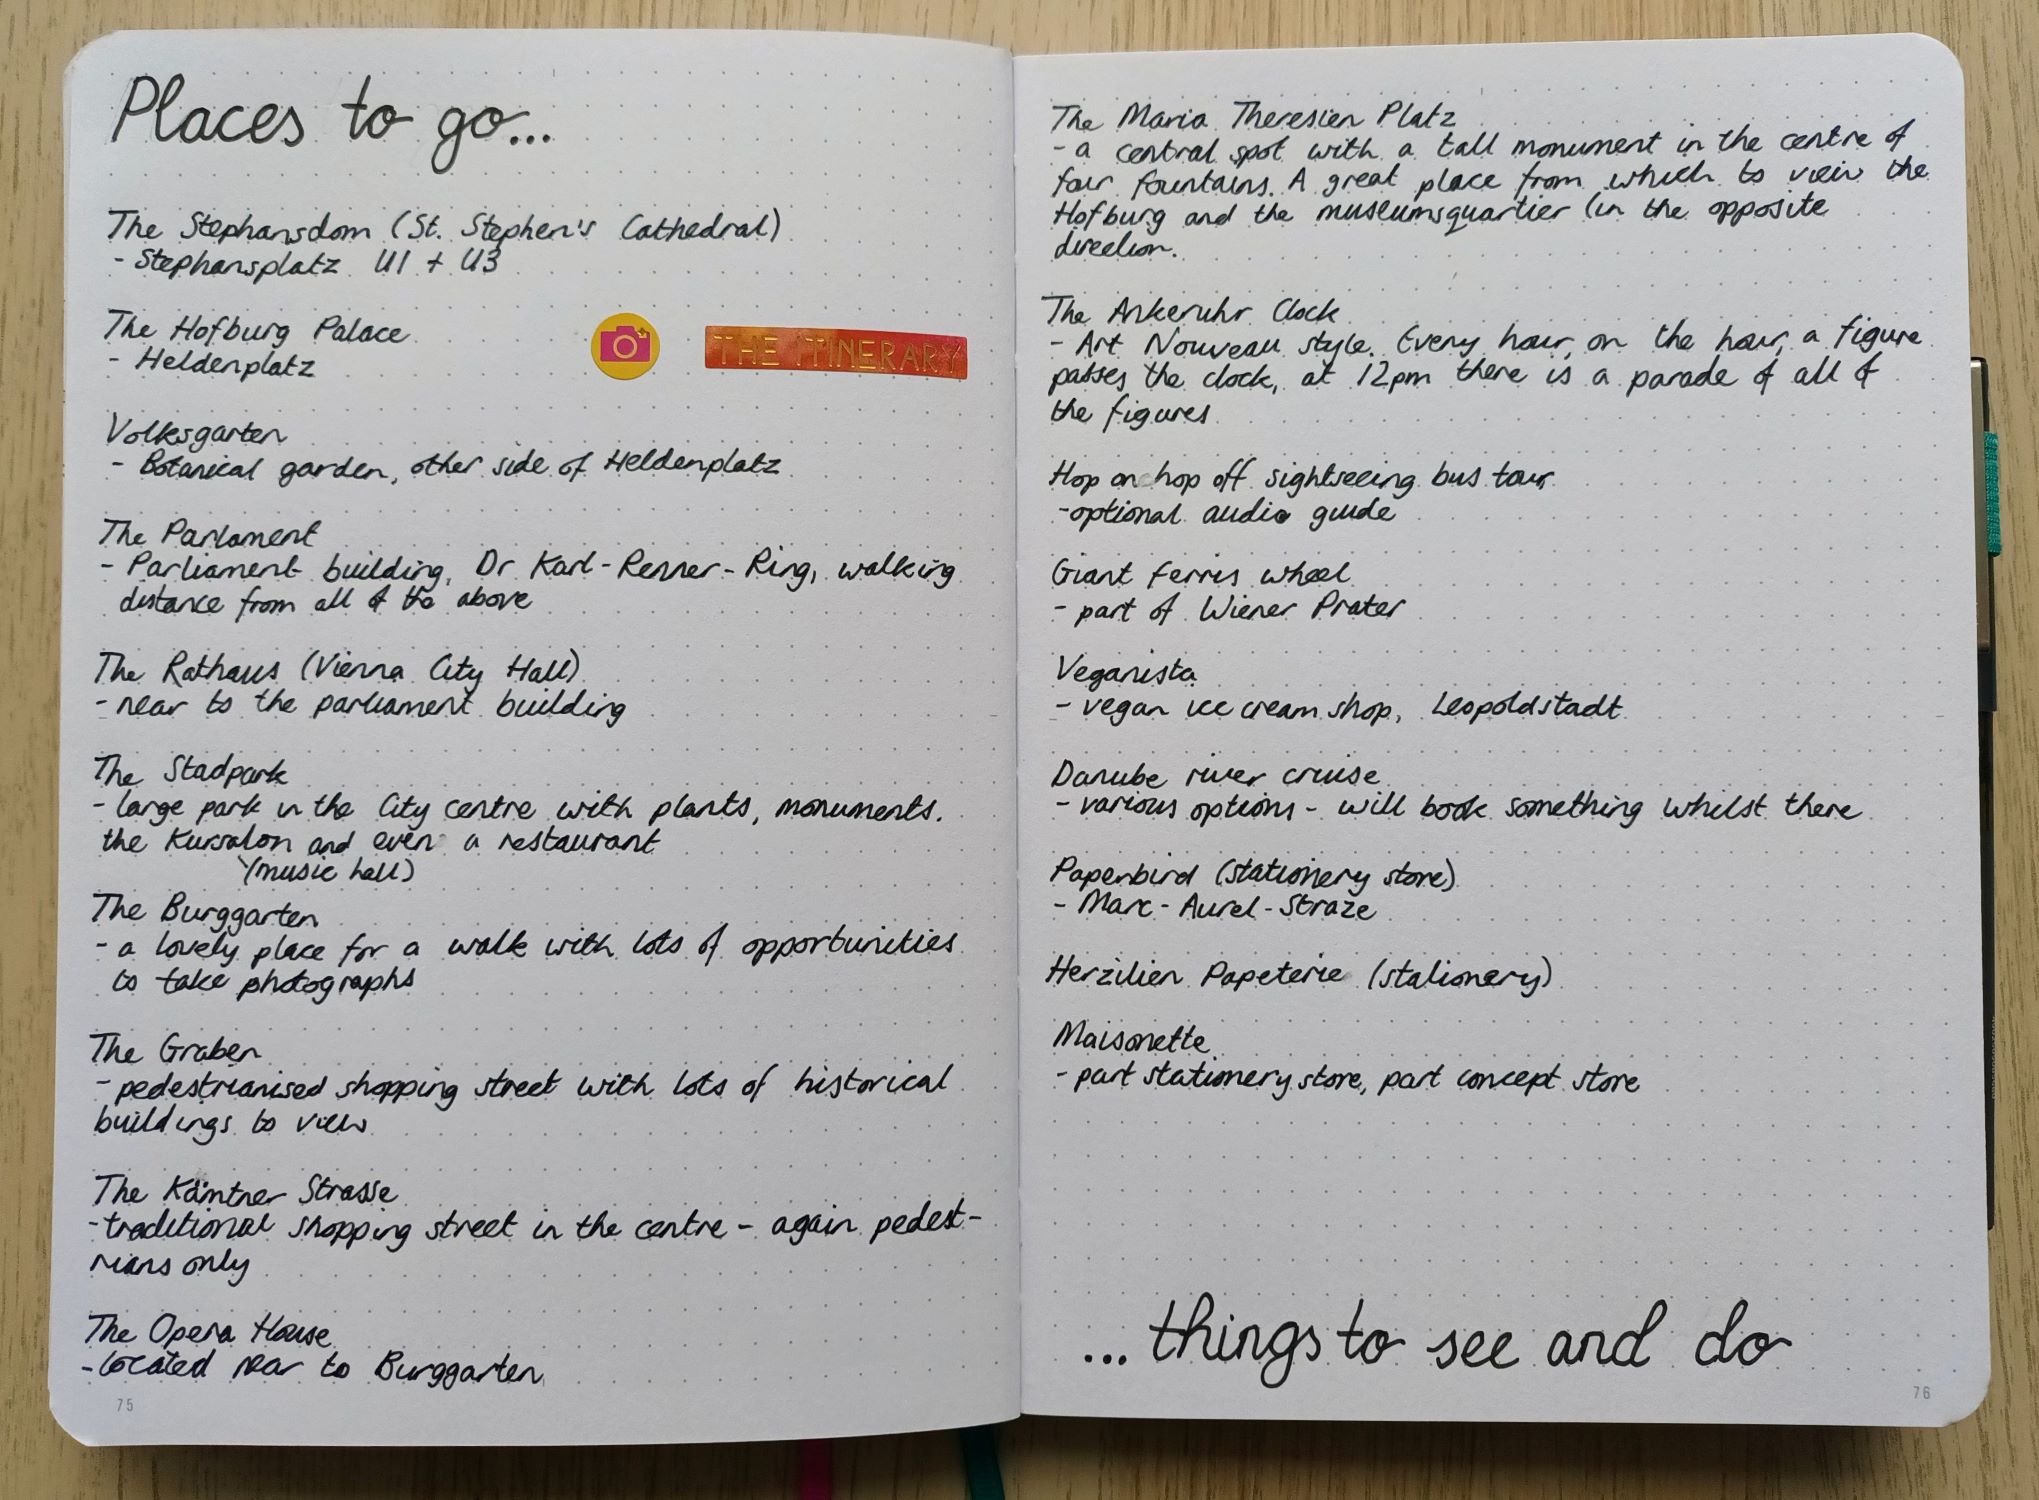 Places to go...
The Stephansdom (St. Stephen's Cathedral)
- Stephansplatz U1 + U3
The Hofburg Palace
- Heldenplatz
THE ITINERARY
Volksgarten
- Botanical garden, other side of Heldenplatz
The Parlament
- Parliament building, Dr Karl-Renner-Ring, walking
distance from all of the above
The Rathaus (Vienna City Hall)
- near to the parliament building
The Stadpark
- large park in the City centre with plants, monuments.
the Kursalon and even a restaurant
(music hall)
The Burggarten
- a lovely place for a walk with lots of opportunities
to take photographs
The Graben
- pedestrianised shopping street with lots of historical
buildings to view
The Kämtner Strasse
- traditional shopping street in the centre - again pedest-
rians only
The Opera House
- located near to Burggarten
75
The Maria Theresien Platz
- a central spot with a tall monument in the centre of
four fountains. A great place from which to view the
Hofburg and the museumsquartier (in the opposite
direction.
The Ankeruhr Clock
- Art Nouveau style. Every hour, on the hour, a figure
passes the clock, at 12pm there is a parade of all of
the figures
Hop on hop off sightseeing bus tour
- optional audio guide
Giant ferris wheel
- part of Wiener Prater
Veganista
- vegan ice cream shop, Leopoldstadt
Danube river cruise
- various options - will book something whilst there
Paperbird (stationery store)
- Marc-Aurel-Straze
Herzilien Papeterie (stationery)
Maisonette
- part stationery store, part concept store
... things to see and do
76